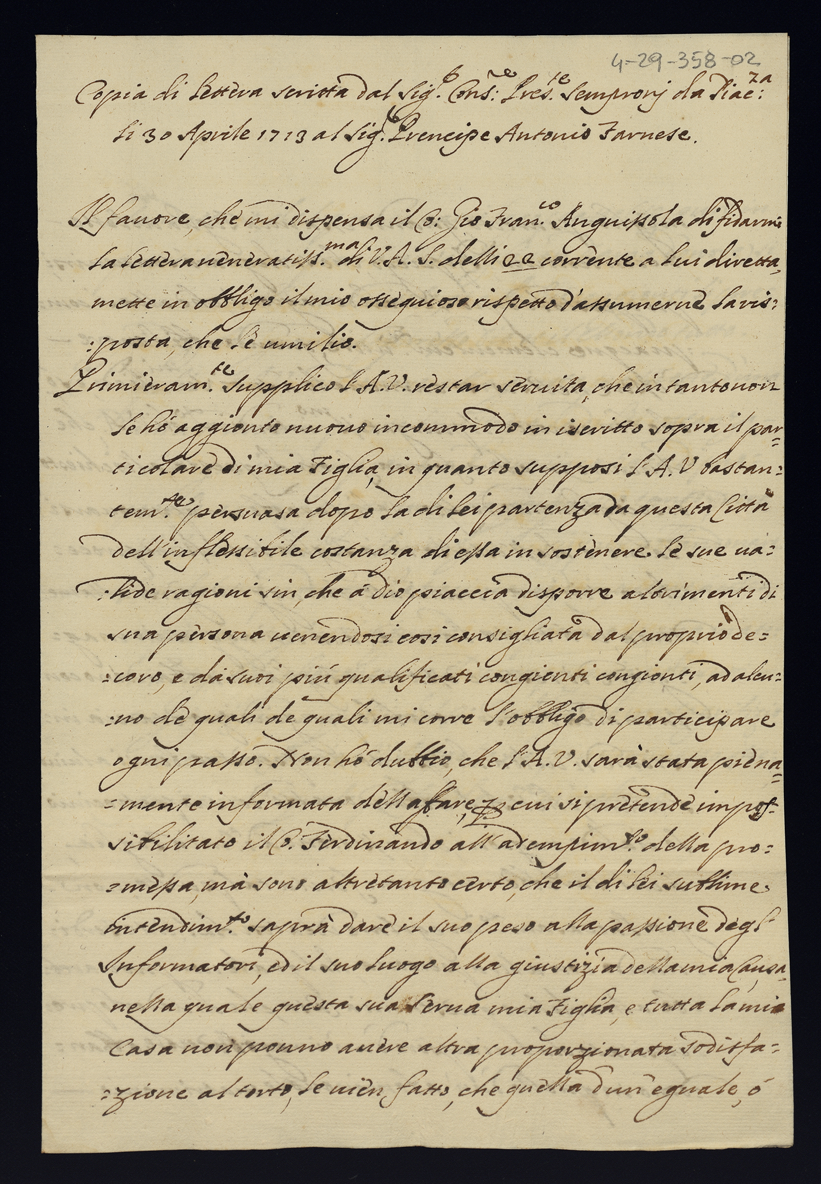 4-29-358-02
Copia di lettera scritta dal Sig.r Cons.re Pres.te Sempronj da Piac.za
li 30 Aprile 1713 al Sig.r Prencipe Antonio Farnese.
Il favore, che mi dispensa il C: Gio Fran.co Anguissola di fidarmi
la lettera veneratiss.ma di V. A. S. delli 22 corrente a lui diretta,
mette in obbligo il mio ossequioso rispetto d'assumerne la ris=
=posta, che l'è umilio.
Primieram.te supplico l'A. V. restar servita, che in tanto non
le hò aggionto nuovo incommodo in iscritto sopra il par=
ticolare di mia Figlia, in quanto supposi l'A. V bastan=
tem.te persuasa dopo la di lei partenza da questa Città
dell'inflessibile costanza di essa in sostenere le sue va=
=lide ragioni sin, che à dio piaccia disporre altrimenti di
sua persona venendosi così consigliata dal proprio de=
=coro, e dà suoi più qualificati congionti congionti, ad alcu=
=no de quali de quali mi corre l'obbligo di participare
ogni passo. Non hò dubbio, che l'A. V. sarà stata piena=
=mente informata dell'affare, p cui si pretende impos=
sibilitato il C. Ferdinando all'adempim.to della pro=
=messa, mà sono altretanto certo, che il di lei sublime
intendim.to saprà dare il suo peso alla passione degl'
Informatori, ed il suo luogo alla giustizia della mia Causa,
nella quale questa sua Serva mia Figlia, e tutta la mia
Casa non ponno avere altra proporzionata sodisfa=
=zione al torto, le vien fatto, che quella d'un eguale, ò